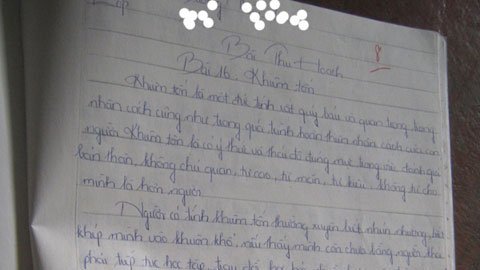 Lớp
8
Bài Thu Hoạch
Bài 16. Khiêm tốn
Khiêm tốn là một đức tính vật quý báu và quan trọng trong
nhân cách cũng như trong quá trình hoàn thiện nhân cách của con
người. Khiêm tốn là có ý thức và thái độ đúng mực trong việc đánh giá
bản thân, không chủ quan, tự cao, tự mãn, tự kiêu, không tự cho
mình là hơn người.
Người có tính khiêm tốn thường xuyên biết nhún nhường, biết
khép mình vào khuôn khổ, nếu thấy mình còn chưa bằng người thì
phải tiếp tục học tập, trau dồi, học